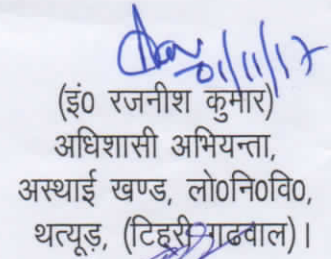 01/11/17
(इं0 रजनीश कुमार)
अधिशासी अभियन्ता,
अस्थाई खण्ड, लो0नि0वि0,
थत्यूड़, (टिहरी गढवाल)।